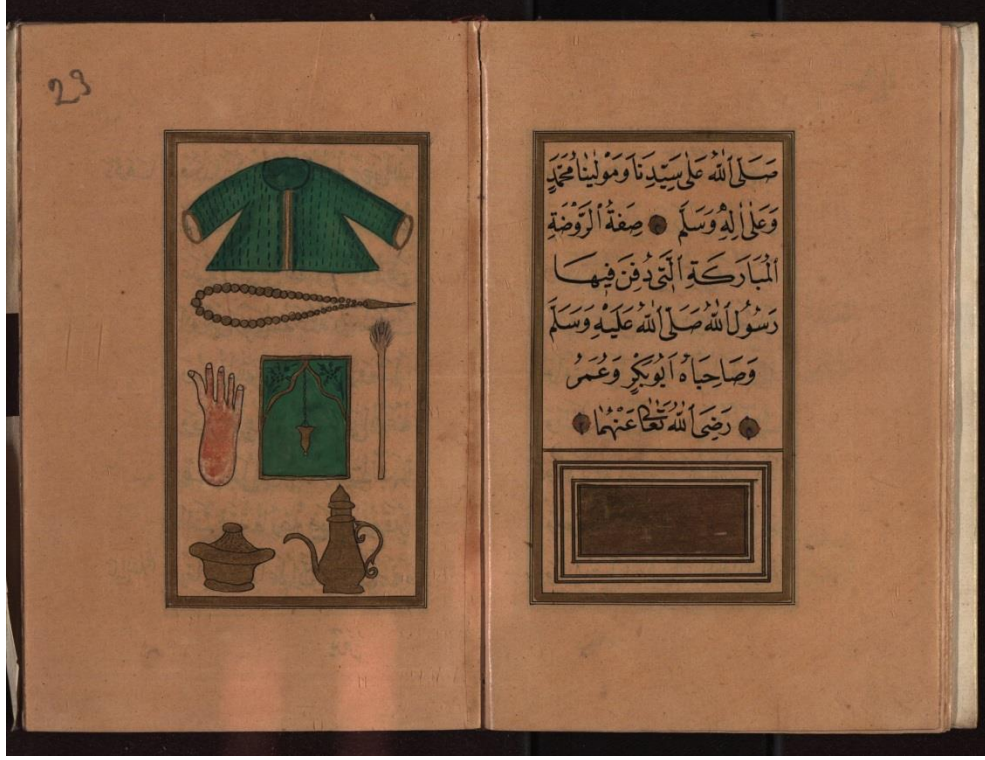 صَلَّى اللّٰهُ عَلٰى سَيِّدِنَا وَمَوْلٰينَا مُحَمَّدٍ
وَعَلٰى اٰلِهٖ وَسَلَّمَ صِفَةُ الرَّوْضَةِ
الْمُبَارَكَةِ الَّتِى دُفِنَ فِيهَا
رَسُولُ اللّٰهِ صَلَّى اللّٰهُ عَلَيْهِ وَسَلَّمَ
وَصَاحِبَاهُ اَبُوبَكْرٍ وَعُمَرُ
رَضِىَ اللّٰهُ تَعَالٰى عَنْهُمَا
23